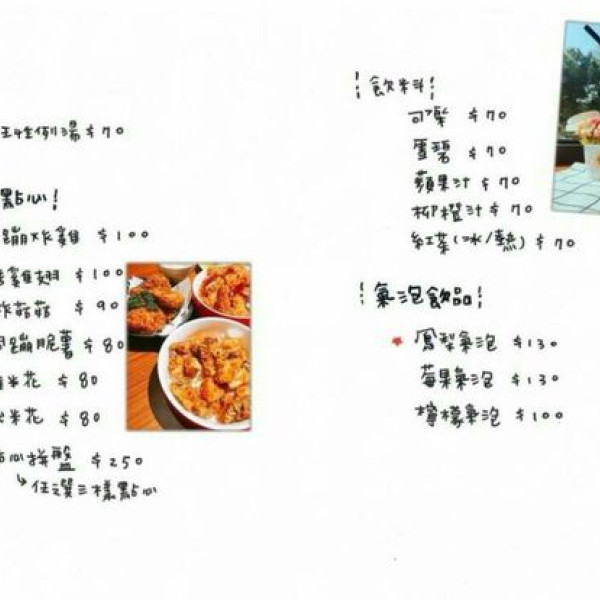 任性例湯 $70
點心!
蹦炸雞 $100
雞翅 $100
炸菇菇 $90
蹦脆薯 $80
米花 $80
米花 $80
點心拼盤 $250
↳任選三樣點心
!飲料!
可樂 $70
雪碧 $70
蘋果汁 $70
柳橙汁 $70
紅茶(冰/熱) $70
!氣泡飲品!
* 鳳梨氣泡 $130
莓果氣泡 $130
檸檬氣泡 $100